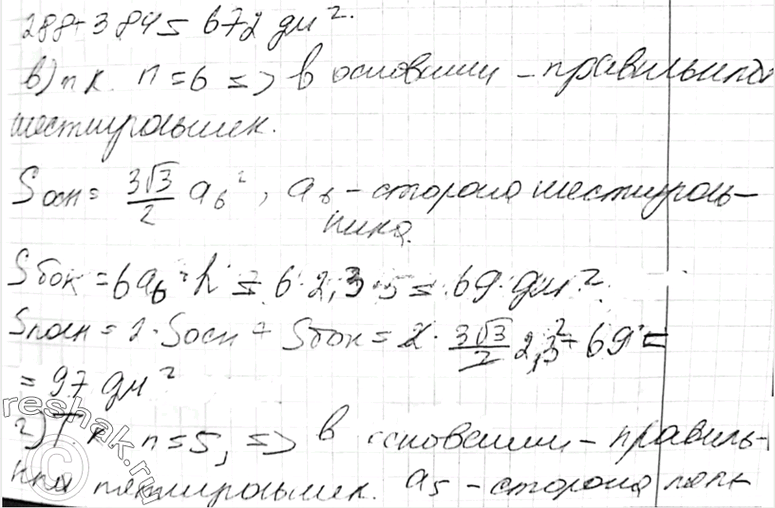 288+384= 672 дм².
в) т.к. n=6 => в основании – правильный
шестиугольник.
Sосн= 3√3/2 a₆², a₆ – сторона шестиуголь-
ника.
Sбок=6a₆·h = 6·2,3·5= 69 дм².
Sполн=2·Sосн+Sбок=2·3√3/2·2,3²+69=
=97 дм²
г) т.к. n=5, => в основании – правиль-
ный пятиугольник. a₅ – сторона пят
reshak.ru